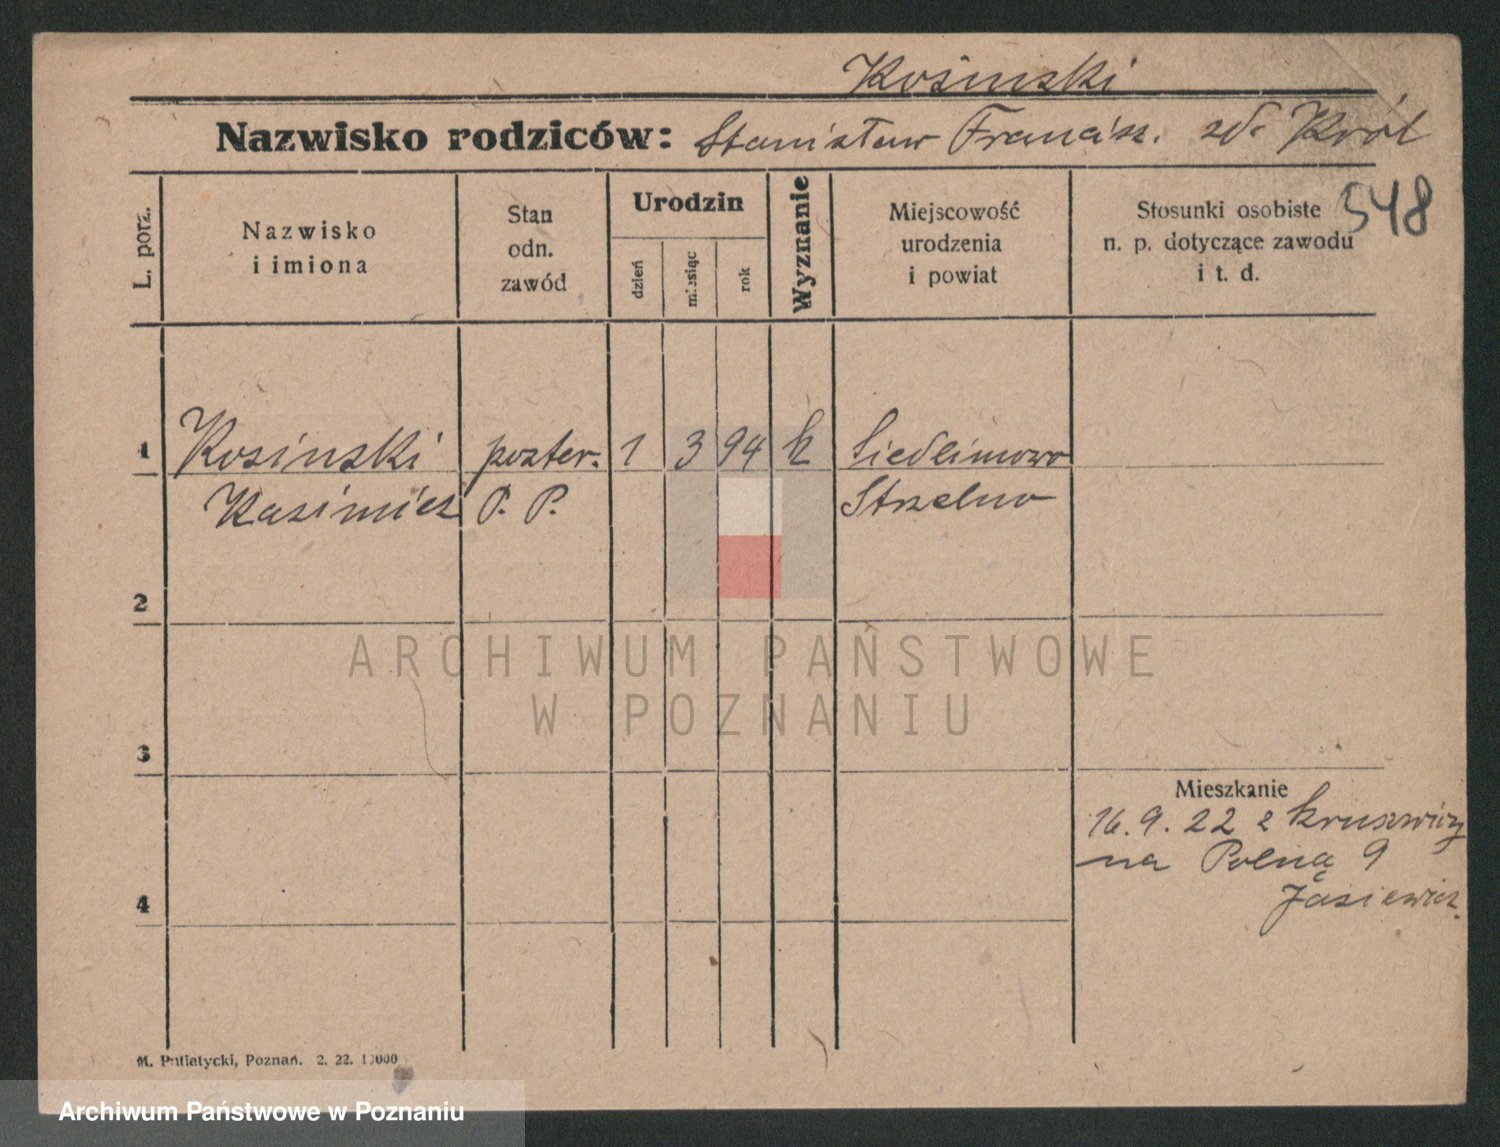 Kośinski
Nazwisko rodziców: Stanisław Francisz. zd. Król
548
L. porz.
Nazwisko
i imiona
Stan
odn.
zawód
Urodzin
dzień
miesiąc
rok
Wyznanie
Miejscowość
urodzenia
i powiat
Stosunki osobiste
n. p. dotyczące zawodu
i t. d.
1 Kosinski poster. 1 3 94 k Siedlimowo
Kasimierz P. P. Strzelno
2
3
4
ARCHIWUM PAŃSTWOWE
W POZNANIU
Mieszkanie
16.9.22 z Kruszwicy
na Polną 9
Jasiewicz.
M. Putiatycki, Poznań. 2. 22. 10000
Archiwum Państwowe w Poznaniu